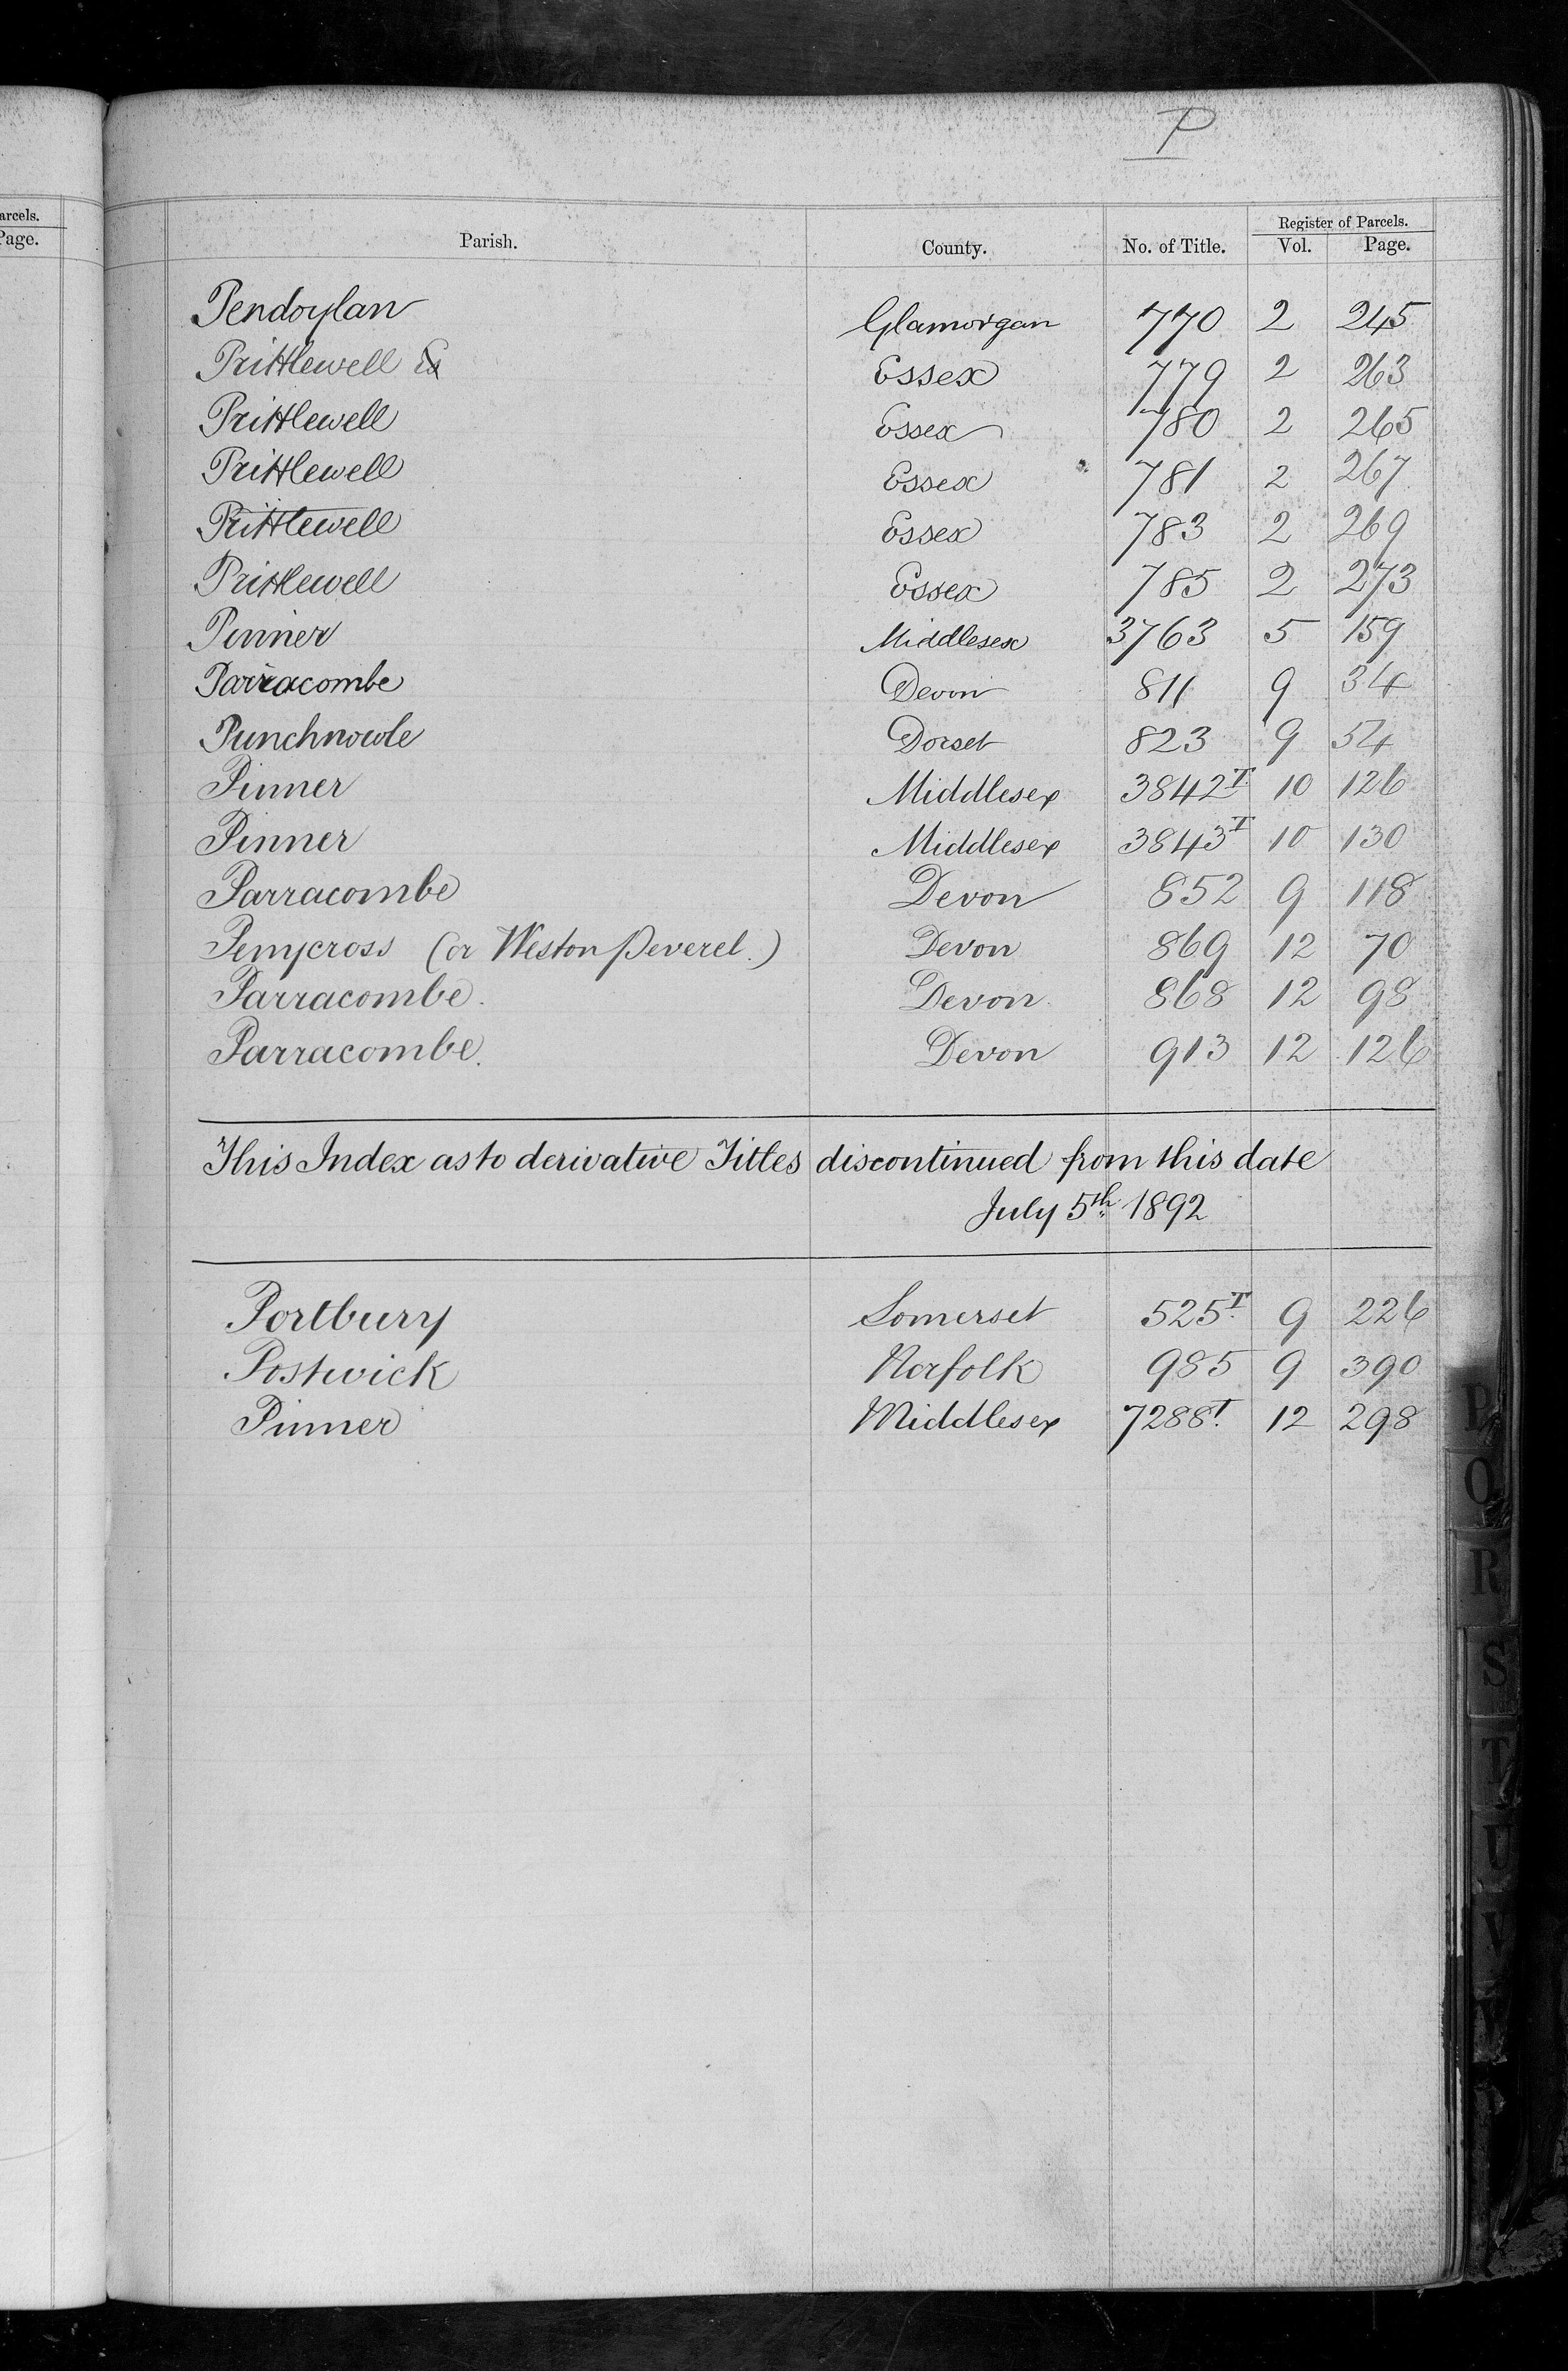 P
arcels.
Page.
Parish. County. No. of Title. Register of Parcels.
Vol. Page.
Pendoylan Glamorgan 770 2 245
Prittlewell Es Essex 779 2 263
Prittlewell Essex 780 2 265
Prittlewell Essex 781 2 267
Prittlewell Essex 783 2 269
Prittlewell Essex 785 2 273
Pinner Middlesex 3763 5 159
Parracombe Devon 811 9 34
Punchnowle Dorset 823 9 54
Pinner Middlesex 3842T. 10 126
Pinner Middlesex 3843T 10 130
Parracombe Devon 852 9 118
Pennycross (or Weston Peverel.) Devon 869 12 70
Parracombe. Devon 868 12 98
Parracombe. Devon 913 12 126
This Index as to derivative Titles discontinued from this date
July 5th 1892
Portbury Somerset 525T. 9 226
Postwick Norfolk 985 9 390
Pinner Middlesex 7288T. 12 298
P
Q
R
S
T
U
V
W